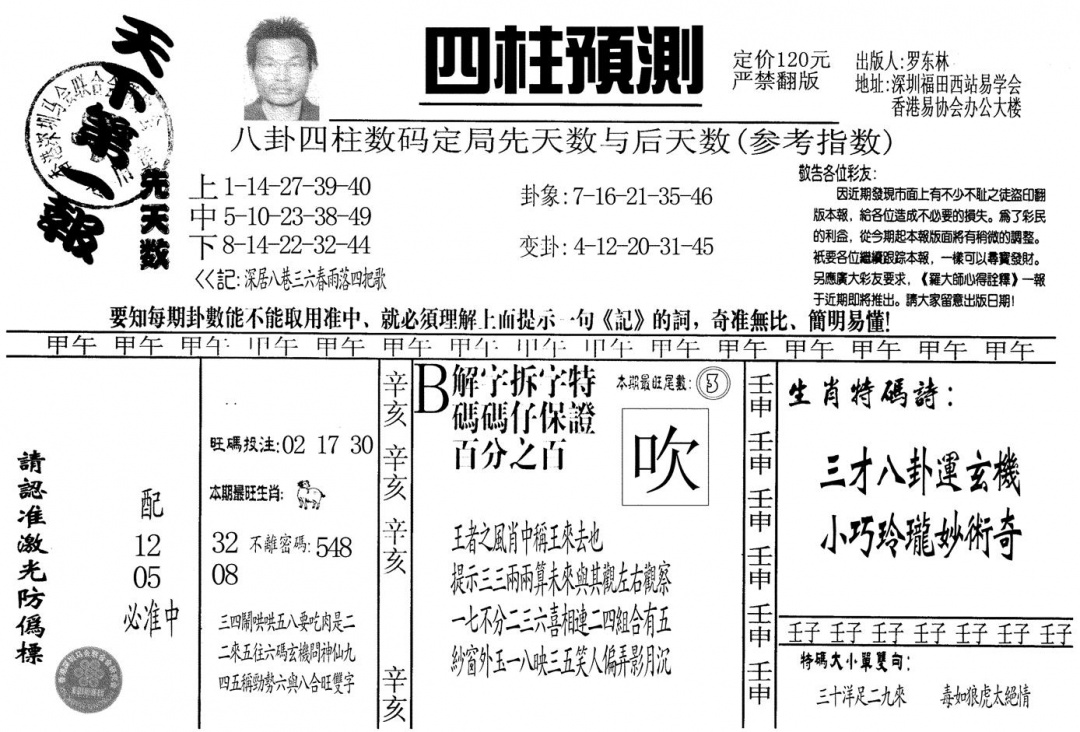 天下第一報
四柱預測
定价120元
严禁翻版
出版人:罗东林
地址:深圳福田西站易学会
香港易协会办公大楼
八卦四柱数码定局先天数与后天数(参考指数)
先天数
上 1-14-27-39-40
中 5-10-23-38-49
下 8-14-22-32-44
卦象: 7-16-21-35-46
变卦: 4-12-20-31-45
<<記: 深居八巷三六春雨落四把歌
敬告各位彩友:
因近期發現市面上有不少不耻之徒盗印翻
版本報，給各位造成不必要的損失。爲了彩民
的利益，從今期起本報版面將有稍微的調整。
衹要各位繼續跟踪本報，一樣可以尋寶發財。
另應廣大彩友要求，《羅大師心得詮釋》一報
于近期即將推出。請大家留意出版日期!
要知每期卦數能不能取用准中、就必須理解上面提示一句《記》的詞，奇准無比、簡明易懂!
甲午 甲午 甲午 甲午 甲午 甲午 甲午 甲午 甲午 甲午 甲午 甲午 甲午 甲午 甲午
請認准激光防僞標
配
12
05
必准中
旺碼投注:02 17 30
本期最旺生肖:
32 不離密碼:548
08
三四鬧哄哄五八要吃肉是二
二來五往六碼玄機問神仙九
四五稱勁勢六與八合旺雙字
辛亥
辛亥
辛亥
辛亥
B解字拆字特
碼碼仔保證
百分之百
本期最旺尾數: 3
吹
王者之風肖中稱王來去也
提示三三兩兩算未來與其觀左右觀察
一七不分二三六喜相連二四組合有五
紗窗外玉一八映三五笑人偏弄影月沉
壬申
壬申
壬申
壬申
壬申
壬申
生肖特碼詩:
三才八卦運玄機
小巧玲瓏妙術奇
壬子 壬子 壬子 壬子 壬子 壬子 壬子
特碼大小單雙句:
三十洋足二九來 毒如狼虎太絕情